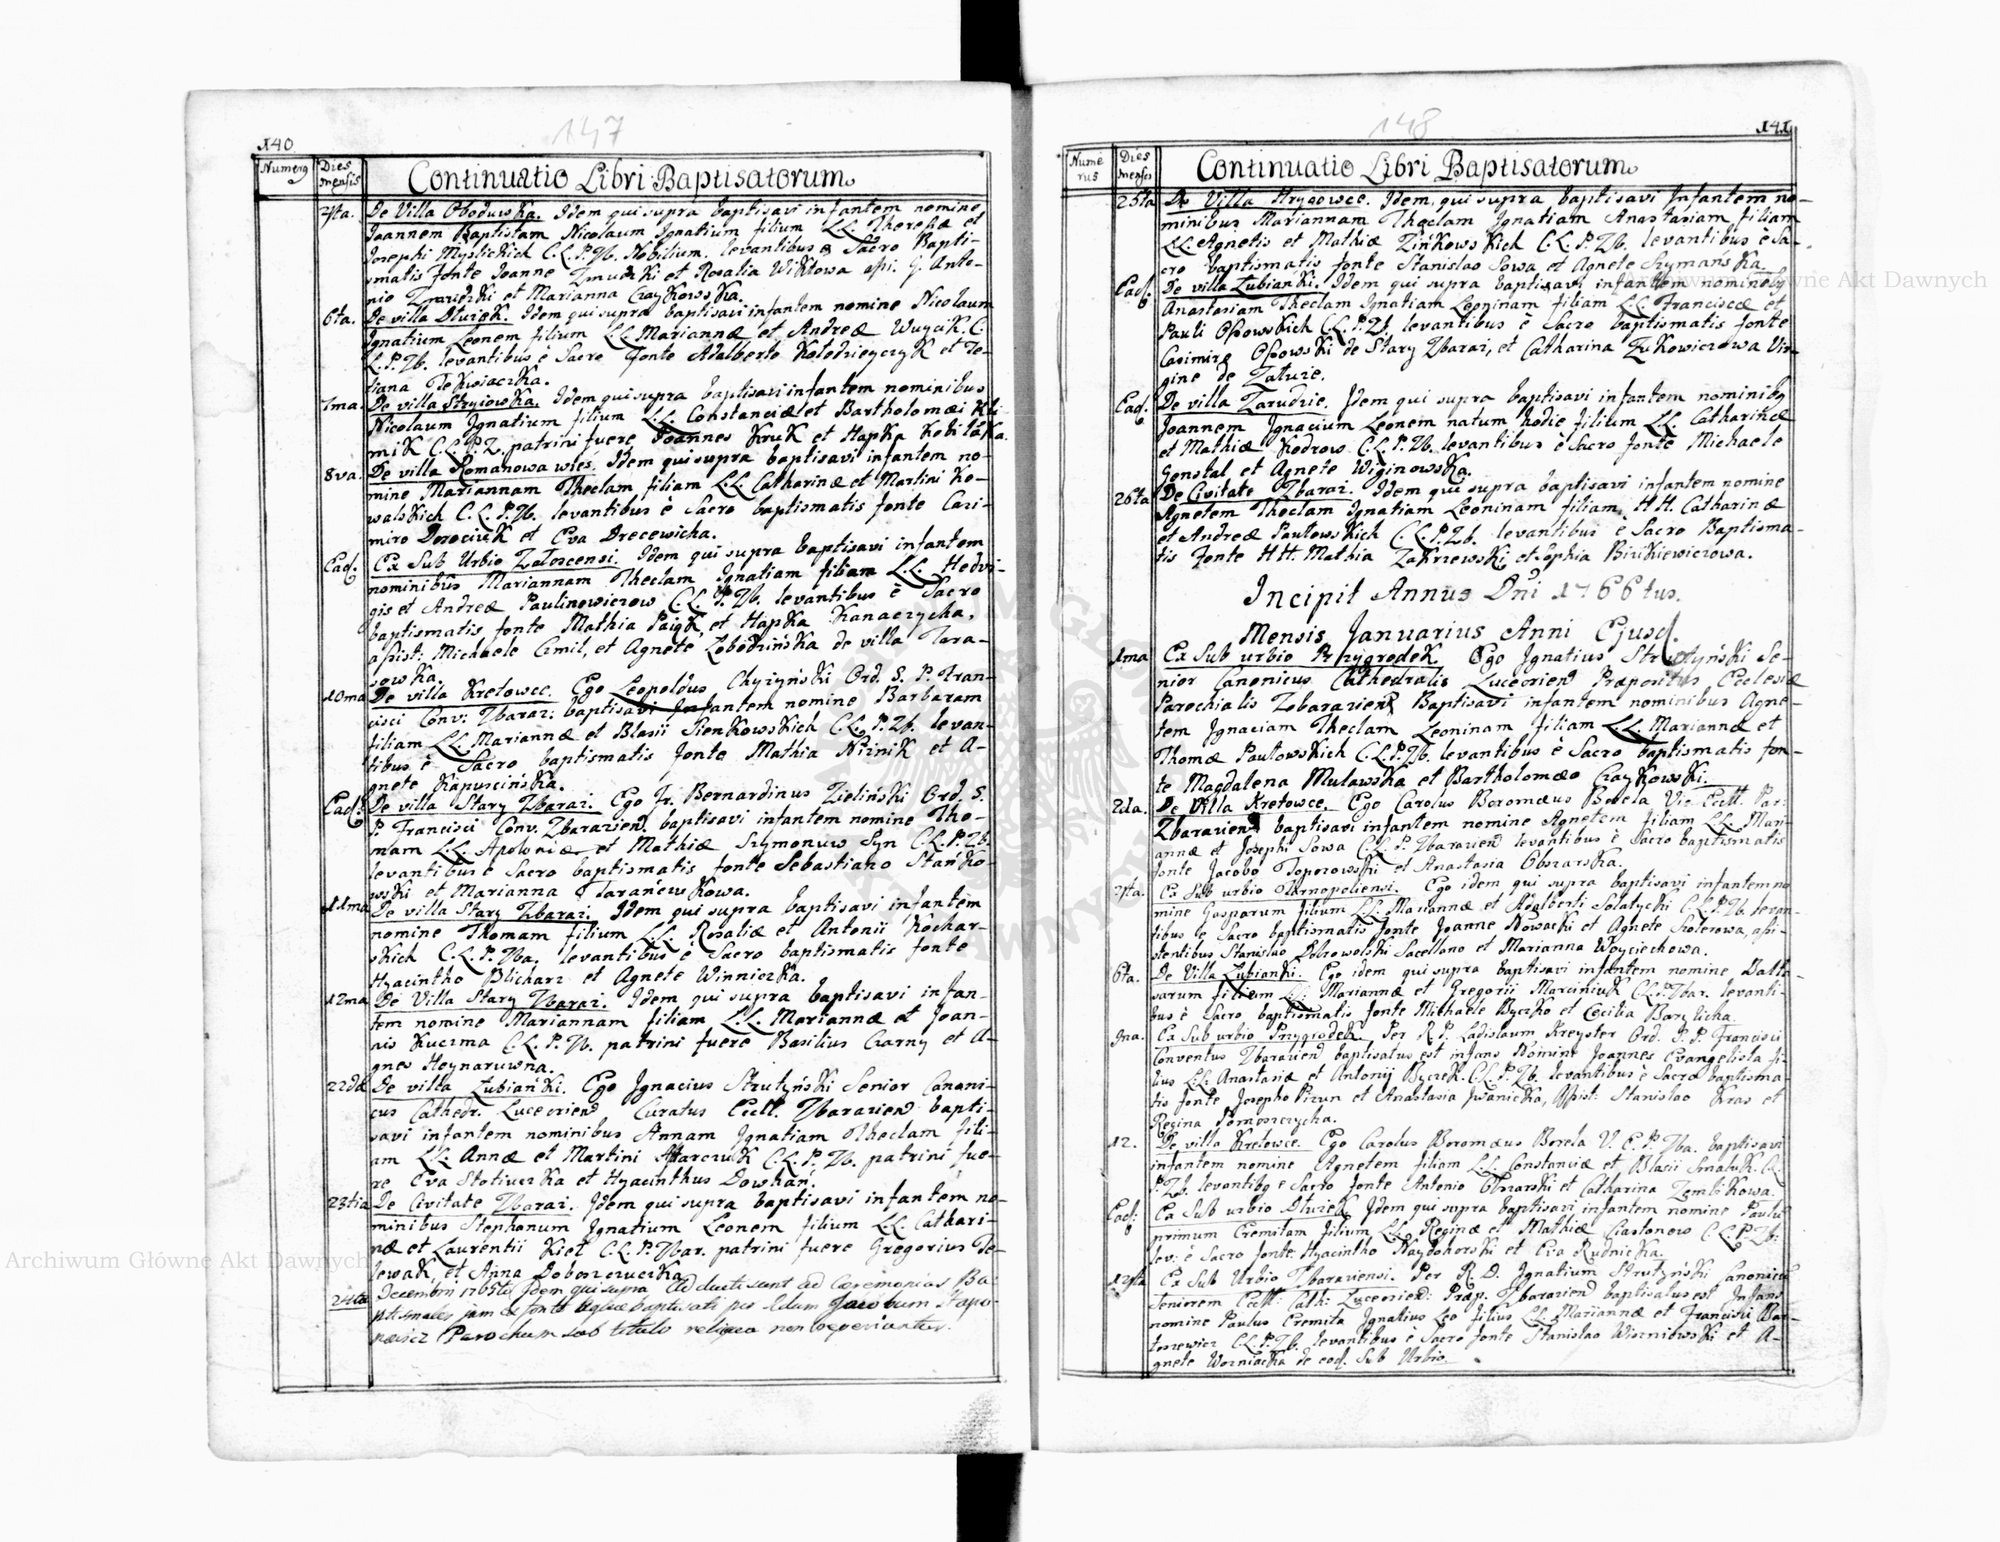 140
147
Numerg
Dies
mensis
Continuatio Libri Baptisatorum
4ta.
De Villa Oboduwka. Idem qui supra baptisavi infantem nomine
Joannem Baptistam Nicolaum Ignatium filium LL. Theresiæ et
Josephi Myslickich C.L.P.Zb. Nobilium. levantibus e Sacro Bapti-
smatis fonte Joanne Zmudzki et Rosalia Wiktowa asi. G. Anto-
nio Zmudzki et Marianna Czaykowska.
6ta.
De villa Dluigk. Idem qui supra baptisavi infantem nomine Nicolaum
Ignatium Leonem filium LL. Mariannæ et Andreæ Wuycik. C.
L.P.Zb. levantibus è Sacro fonte Adalberto Kołodzieyczyk et Te-
tiana Tekwiaczka.
7ma.
De villa Stryiowka. Idem qui supra baptisavi infantem nominibus
Nicolaum Ignatium filium LL. Constanciæ et Bartholomæi Kli-
mik C.L.P.Z. patrini fuere Joannes Kruk et Hapka Kobilaka.
8va.
De villa Romanowa wies. Idem qui supra baptisavi infantem no-
mine Mariannam Theclam filiam LL. Catharinæ et Martini Ko-
walskich C.L.P.Zb. levantibus è Sacro baptismatis fonte Casi-
miro Dorociuk et Eva Drecewicha.
Ead.
Ex Sub Urbio Załoscensi. Idem qui supra baptisavi infantem
nominibus Mariannam Theclam Ignatiam filiam LL. Hedvi-
gis et Andreæ Paulinowiczow C.L.P.Zb. levantibus è Sacro
baptismatis fonte Mathia Paigk, et Hapka Kanaczycha,
assist: Michaele Cimil, et Agnete Lobodzińska de villa Tara-
sowka.
10ma
De villa Kretowce. Ego Leopoldus Chyżyński Ord. S. P. Fran-
cisci Conv: Zbaraz: baptisavi Infantem nomine Barbaram
filiam LL. Mariannæ et Blasii Sienkowskich C.L.P.Zb. levan-
tibus è Sacro baptismatis fonte Mathia Niznik et A-
gnete Kapuscińska.
Ead.
De villa Stary Zbaraz. Ego Fr. Bernardinus Zieliński Ord. S.
P. Francisci Conv. Zbarazien. baptisavi infantem nomine Tho-
mam LL. Apoloniæ et Mathiæ Szymonuw Syn C.L.P.Zb.
levantibus è Sacro baptismatis fonte Sebastiano Stańko-
wski et Marianna Tarańewkowa.
11ma
De villa Stary Zbaraz. Idem qui supra baptisavi infantem
nomine Thomam filium LL. Rosaliæ et Antonii Kochar-
skich C.L.P.Zba. levantibus è Sacro baptismatis fonte
Hyacintho Blicharz et Agnete Winniczka.
12ma
De Villa Stary Zbaraz. Idem qui supra baptisavi infan-
tem nomine Mariannam filiam LL. Mariannæ et Joan-
nis Kuczma C.L.P.Zb. patrini fuere Basilius Czarny et A-
gnes Heynaruwna.
22da
De villa Lubiańki. Ego Ignacius Strutyński Senior Canani-
cus Cathedr. Luceorien Curatus Eccll. Zbarazien bapti-
savi infantem nominibus Annam Ignatiam Theclam fili-
am LL. Annæ et Martini Harczuk C.L.P.Zb. patrini fue-
re Eva Stotiuczka et Hyacinthus Dowhan.
23tia
De Civitate Zbaraz. Idem qui supra baptisavi infantem no-
minibus Stephanum Ignatium Leonem filium LL. Cathari-
næ et Laurentii Kiet C.L.P.Zbar. patrini fuere Gregorius Te-
lewak, et Anna Doboszczuczka.
24ta
Decembri 1765to Idem qui supra Ad ducti sunt ad Ceremonias Ba-
ptismales jam ex fonte aquæ baptisati per Idum Jacobum
Parochum sub titulo reliqua non reperiuntur.
141
148
Nume
rus
Dies
mensis
Continuatio Libri Baptisatorum
25ta
De Villa Hrycowce. Idem qui supra baptisavi Infantem no-
minibus Mariannam Theclam Ignatiam Anastasiam filiam
LL. Agnetis et Mathiæ Zińkowskich C.L.P.Zb. levantibus è Sa-
cro baptismatis fonte Stanislao Sowa et Agnete Szymańska.
Ead.
De villa Lubiańki. Idem qui supra baptisavi infantem nominibg
Anastasiam Theclam Ignatiam Leoninam filiam LL. Franciscæ et
Pauli Ossowskich C.L.P.Zb. levantibus è Sacro baptismatis fonte
Casimirg Ossowski de Stary Zbaraz, et Catharina Zukowiczowa Vir-
gine de Załuze.
Ead.
De villa Zarudzie. Idem qui supra baptisavi infantem nominibg
Joannem Ignacium Leonem natum hodie filium LL. Catharinæ
et Mathiæ Kodrow C.L.P.Zb. levantibus è Sacro fonte Michaele
Gonstal et Agnete Wiginowska.
26ta
De Civitate Zbaraz. Idem qui supra baptisavi infantem nomine
Agnetem Theclam Ignatiam Leoninam filiam HH. Catharinæ
et Andreæ Pawłowskich C.L.P.Zb. levantibus è Sacro Baptisma-
tis fonte HH. Mathia Zakrzewski et Sophia Bickiewiczowa.
Incipit Annus Dni 1766tus.
Mensis Januarius Anni Ejusd.
1ma
Ex Sub urbio Przygrodek Ego Ignatius Strutyński Se-
nior Canonicus Cathedralis Luceorien Præpositus Ecclesiæ
Parochialis Zebarazien Baptisavi infantem nominibus Agne-
tem Ignaciam Theclam Leoninam filiam LL. Mariannæ et
Thomæ Pawłowskich C.L.P.Zb. levantibus è Sacro baptismatis fon-
te Magdalena Mulawska et Bartholomæo Czaykowski.
2da.
De Villa Kretowce. Ego Carolus Boromæus Berela Vic. Eccll. Par:
Zbarazien baptisavi infantem nomine Agnetem filiam LL. Mari-
annæ et Josephi Sowa C.L.P. Zbarazien levantibus è Sacro baptismatis
fonte Jacobo Toporowski et Anastasia Obszarska.
4ta.
Ex Sub urbio Tarnopoliensi. Ego idem qui supra baptisavi infantem no
mine Gasparum filium LL. Mariannæ et Adalberti Solatycki C.L.P.Zb. levan-
tibus e Sacro baptismatis fonte Joanne Nowacki et Agnete Szoterowa, assi-
stentibus Stanislao Dobrowolski Sacellano et Marianna Woyciechowa.
6ta.
De Villa Lubianki. Ego idem qui supra baptisavi infantem nomine Balta-
sarum filium LL. Mariannæ et Gregorii Marciniuk C.L.P.Zbar. levanti-
bus è Sacro baptismatis fonte Michaele Byczko et Cecilia Barylicha.
9na.
Ex Sub urbio Przygrodek. Per R.P. Ladislaum Kreyster Ord. S.P. Francisci
Conventus Zbarazien baptisatus est infans Nomine Joannes Evangelista fi-
lius LL. Anastasiæ et Antonii Byczek. C.L.P.Zb. levantibus è Sacro baptisma-
tis fonte Josepho Pizun et Anastasia Iwanicka, Assist: Stanislao Kras et
Regina Pomorczycha.
12.
De villa Kretowce. Ego Carolus Boromæus Berela V. E. P. Zba. baptisavi
infantem nomine Agnetem filiam LL. Constanciæ et Blasii Smaluk. C.L.
P.Zb. levantibg e Sacro fonte Antonio Obszarski et Catharina Zembikowa.
Ead:
Ex Sub urbio Dluzek Idem qui supra baptisavi infantem nomine Paulu
primum Eremitam filium LL. Reginæ et Mathiæ Ciastonow C.L.P.Zb.
lev: è Sacro fonte Hyacintho Naydohorski et Eva Rudnicka.
14ta
Ex Sub Urbio Zbaraziensi. Per R. D. Ignatium Strutyński Canonicu
Seniorem Eccll: Cath: Luceorien: Præp. Zbarazien baptisatus est Infans
nomine Paulus Eremita Ignatius Leo filius LL. Mariannæ et Francisci Bar-
toszewicz C.L.P.Zb. levantibus è Sacro fonte Stanislao Wiszniowski et A-
gnete Wozniacka de eod. Sub Urbio.
Archiwum Główne Akt Dawnych
Archiwum Główne Akt Dawnych